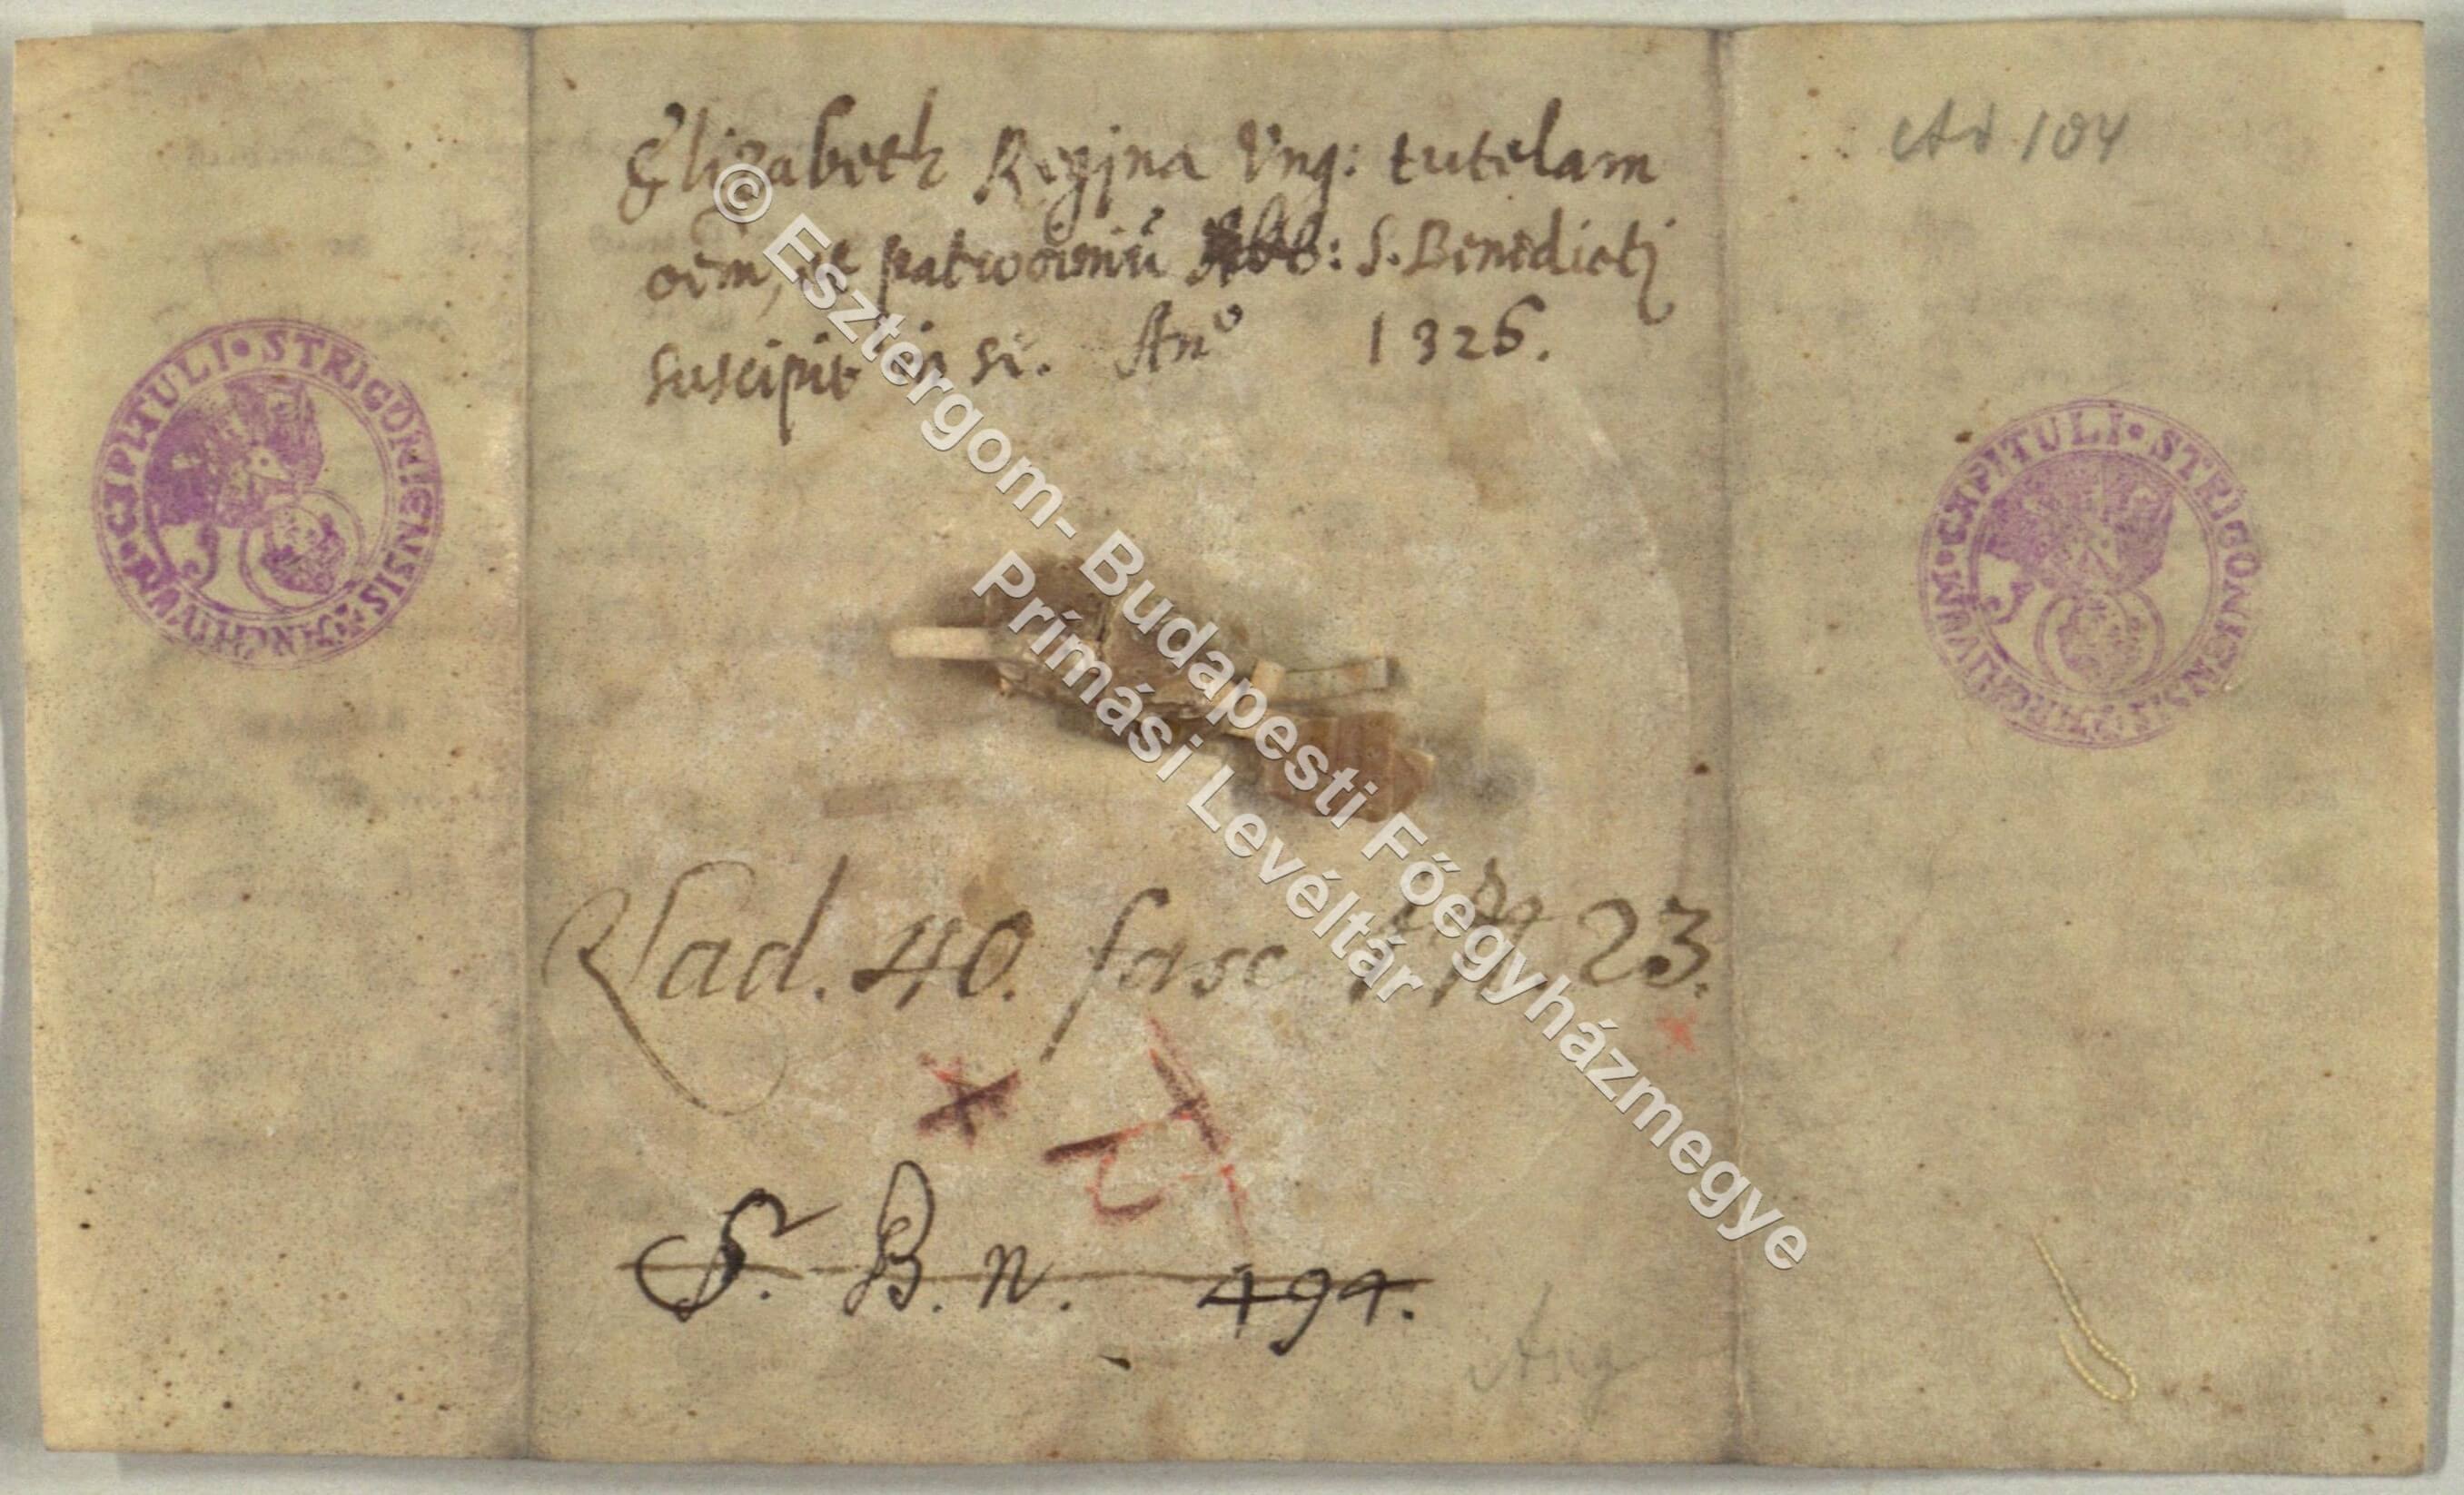 Elizabeth Regina Vng: tutelam
oēm, et patrociniū Abb: S. Benedicti
suscipit in se. Anᵒ 1326.
Ad 104
CAPITULI • STRIGONIENSIS • ARCHIVUM •
CAPITULI • STRIGONIENSIS • ARCHIVUM •
Lad. 40. fasc 23.
S. B. n. 494.
Ang
© Esztergom- Budapesti Főegyházmegye
Prímási Levéltár